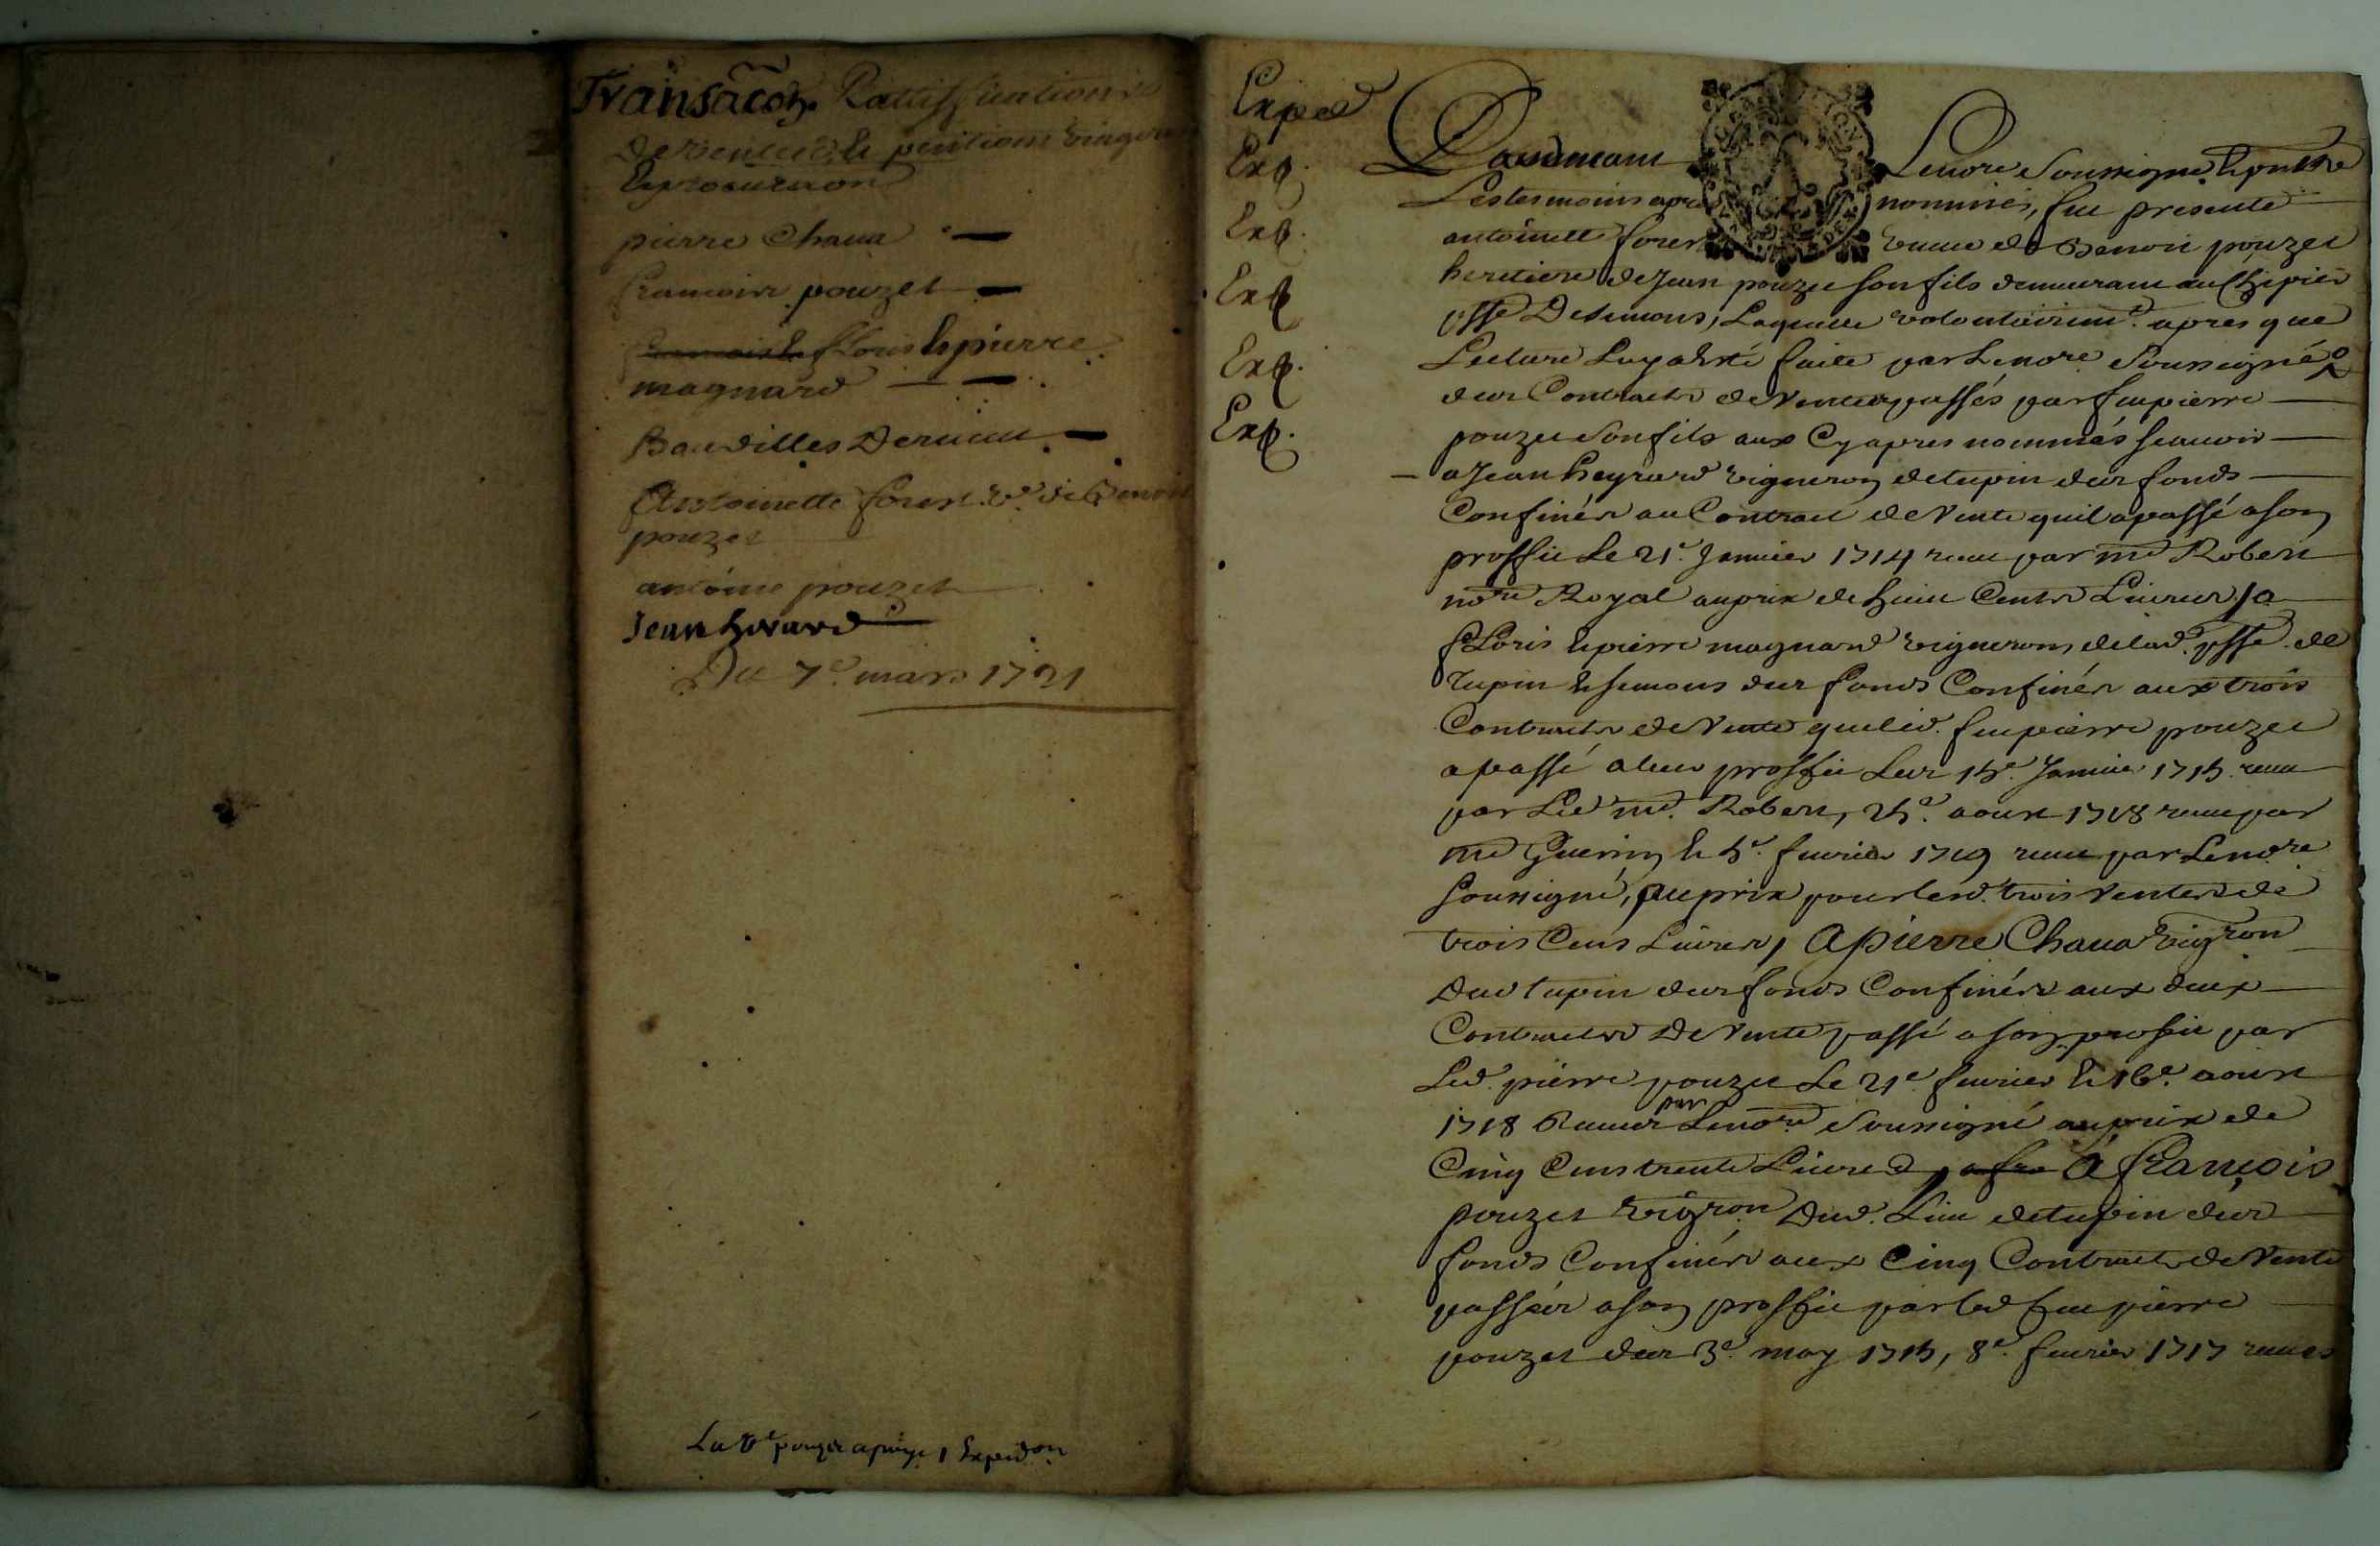 Transacon Rattiffications
De ventes, & pentions viageres
& procuraon
pierre Chaua
francois pouzet
floris & pierre
magnard
Baudilles Dervieu
Antoinette forest ve. de Benoit
pouzet
antoine pouzet
Jean heirard
Du 7e. mars 1721
La ve pouzet a pris 1 Expedon
Exped
Exp.
Exp.
Exp
Exp.
Exp.
Pardevant Le nore Soussigné, & présents
Les tesmoins apres nommés, fut presente
antoinette forest veuve de Benoit pouzet
heretiere de Jean pouzet son fils demeurant au
psse De Semons, Laquelle volontairemt. apres que
Lecture Luy a esté faite par Le nore. Soussigné
des Contracts de ventes passés par feu pierre
pouzet son fils aux Cy apres nommés scauoir
a Jean heyrard vigneron de tupin des fonds
Confinés au Contract de Vente quil a passé a son
proffit Le 21e. Januier 1714 receu par me Robert
nore Royal au prix de huit Cents Liures, a
floris & pierre magnard vignerons de lad. psse de
tupin & semons des fonds Confinés aux trois
Contracts de Vente que led. feu pierre pouzet
a passé a leur proffit Les 15e. Januier 1715. receu
par Led me. Robert, 25e. aoust 1718 receu par
me Guerin & 5e. feurier 1719 receu par Le nore
soussigné, au prix pour lesd. trois Ventes de
trois Cens Liures, A pierre Chaua vigron
Dud tupin des fonds Confinés aux deux
Contracts De Vente passé a son proffit par
Led. pierre pouzet Le 21e. feurier & 16e. aoust
1718 Receus par Le nore Soussigné au prix de
Cinq Cens trente Liures, a fra A francois
pouzet vigron Dud. Lieu de tupin des
fonds Confinés aux Cinq Contracts de Vente
passés a son proffit par led feu pierre
pouzet des 3e. may 1715, 8e. feurier 1717 receus